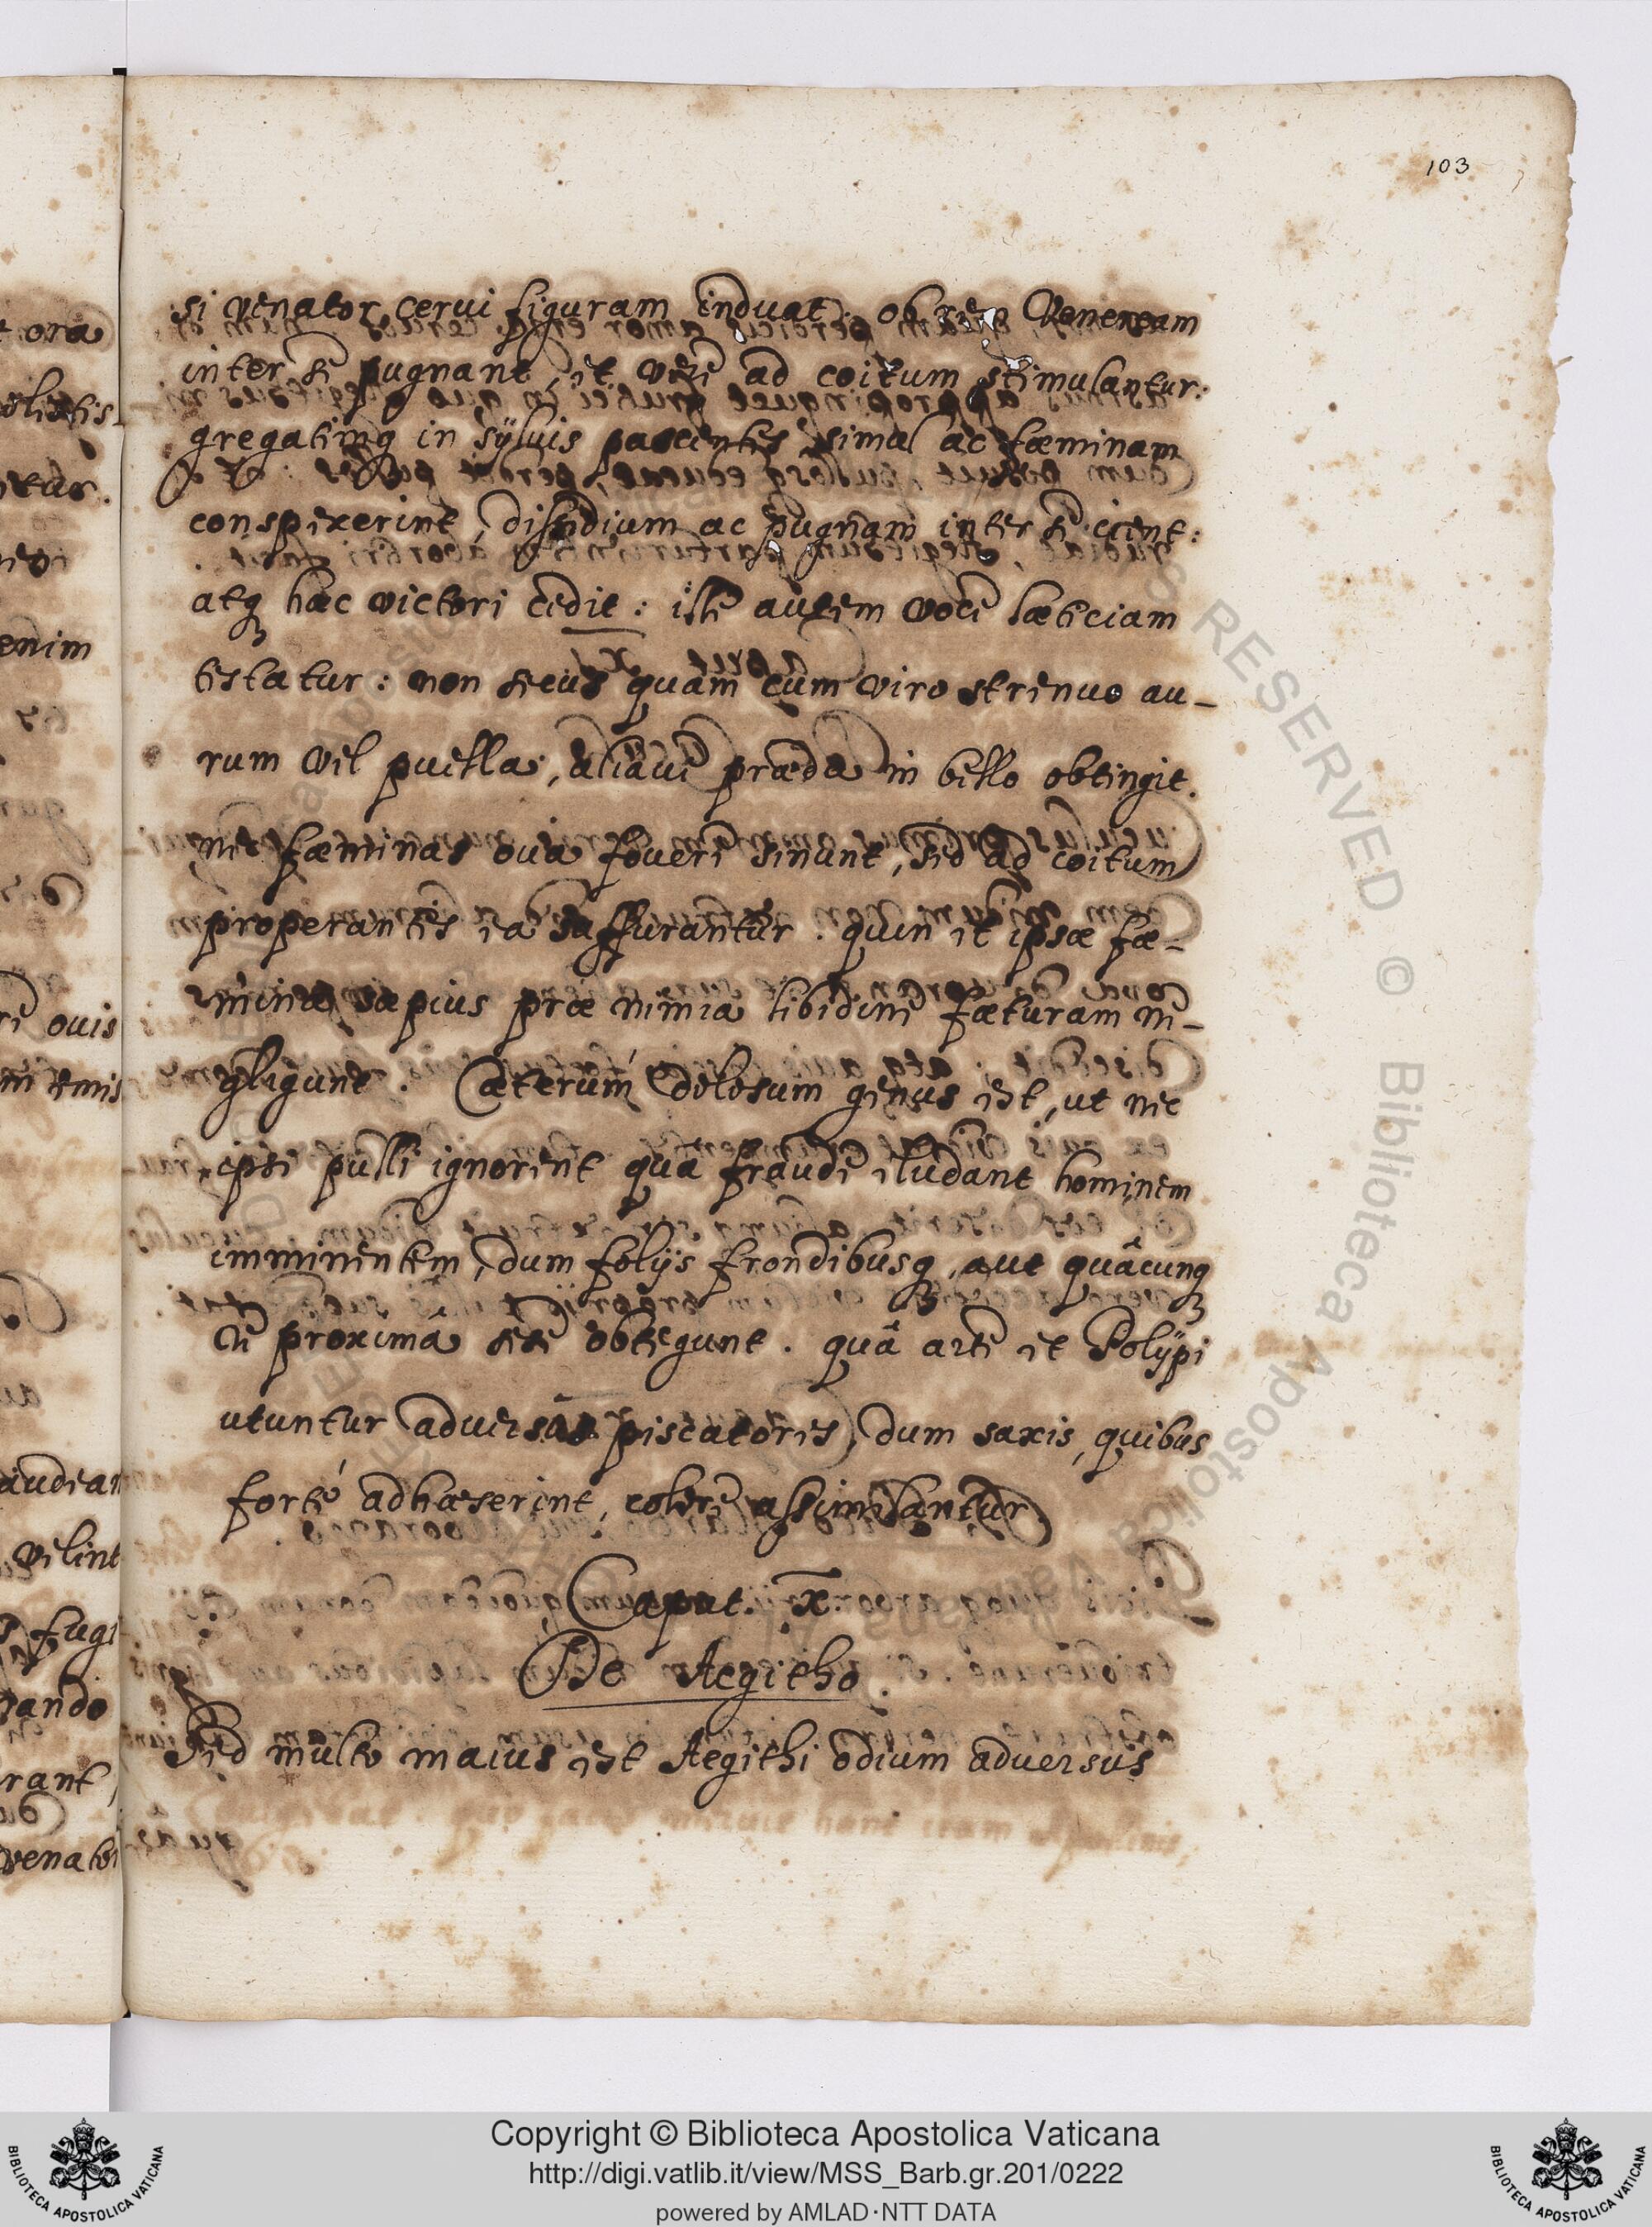 103
si venator cervi figuram induat. ob rem Veneream
inter se pugnant, et vere ad coitum stimulantur:
gregatimq in sylvis pascentes simul ac fæminam
conspexerint, dissidium ac pugnam inter se cient:
atq hæc victori cedit: iste autem voce læticiam
testatur: non secus quàm cum viro strenuo au-
rum vel puella, aliàve præda in bello obtingit.
nec fæminas ova fovere sinunt, sed ad coitum
properantes ea suffurantur. quin et ipsæ fæ-
minæ sæpius præ nimia libidine fæturam ne-
gligunt. Cæterùm dolosum genus est, ut nec
ipsi pulli ignorent qua fraude eludant hominem
imminentem, dum folijs frondibusq, aut quâcunq
re proximâ sese obtegunt. quâ arte et Polypi
utuntur adversus piscatores, dum saxis, quibus
forté adhæserint, colore assimilantur
Caput. x.
De Aegitho.
Sed multo maius est Aegithi odium adversus
Copyright © Biblioteca Apostolica Vaticana
http://digi.vatlib.it/view/MSS_Barb.gr.201/0222
powered by AMLAD·NTT DATA
BIBLIOTECA APOSTOLICA VATICANA
BIBLIOTECA APOSTOLICA VATICANA